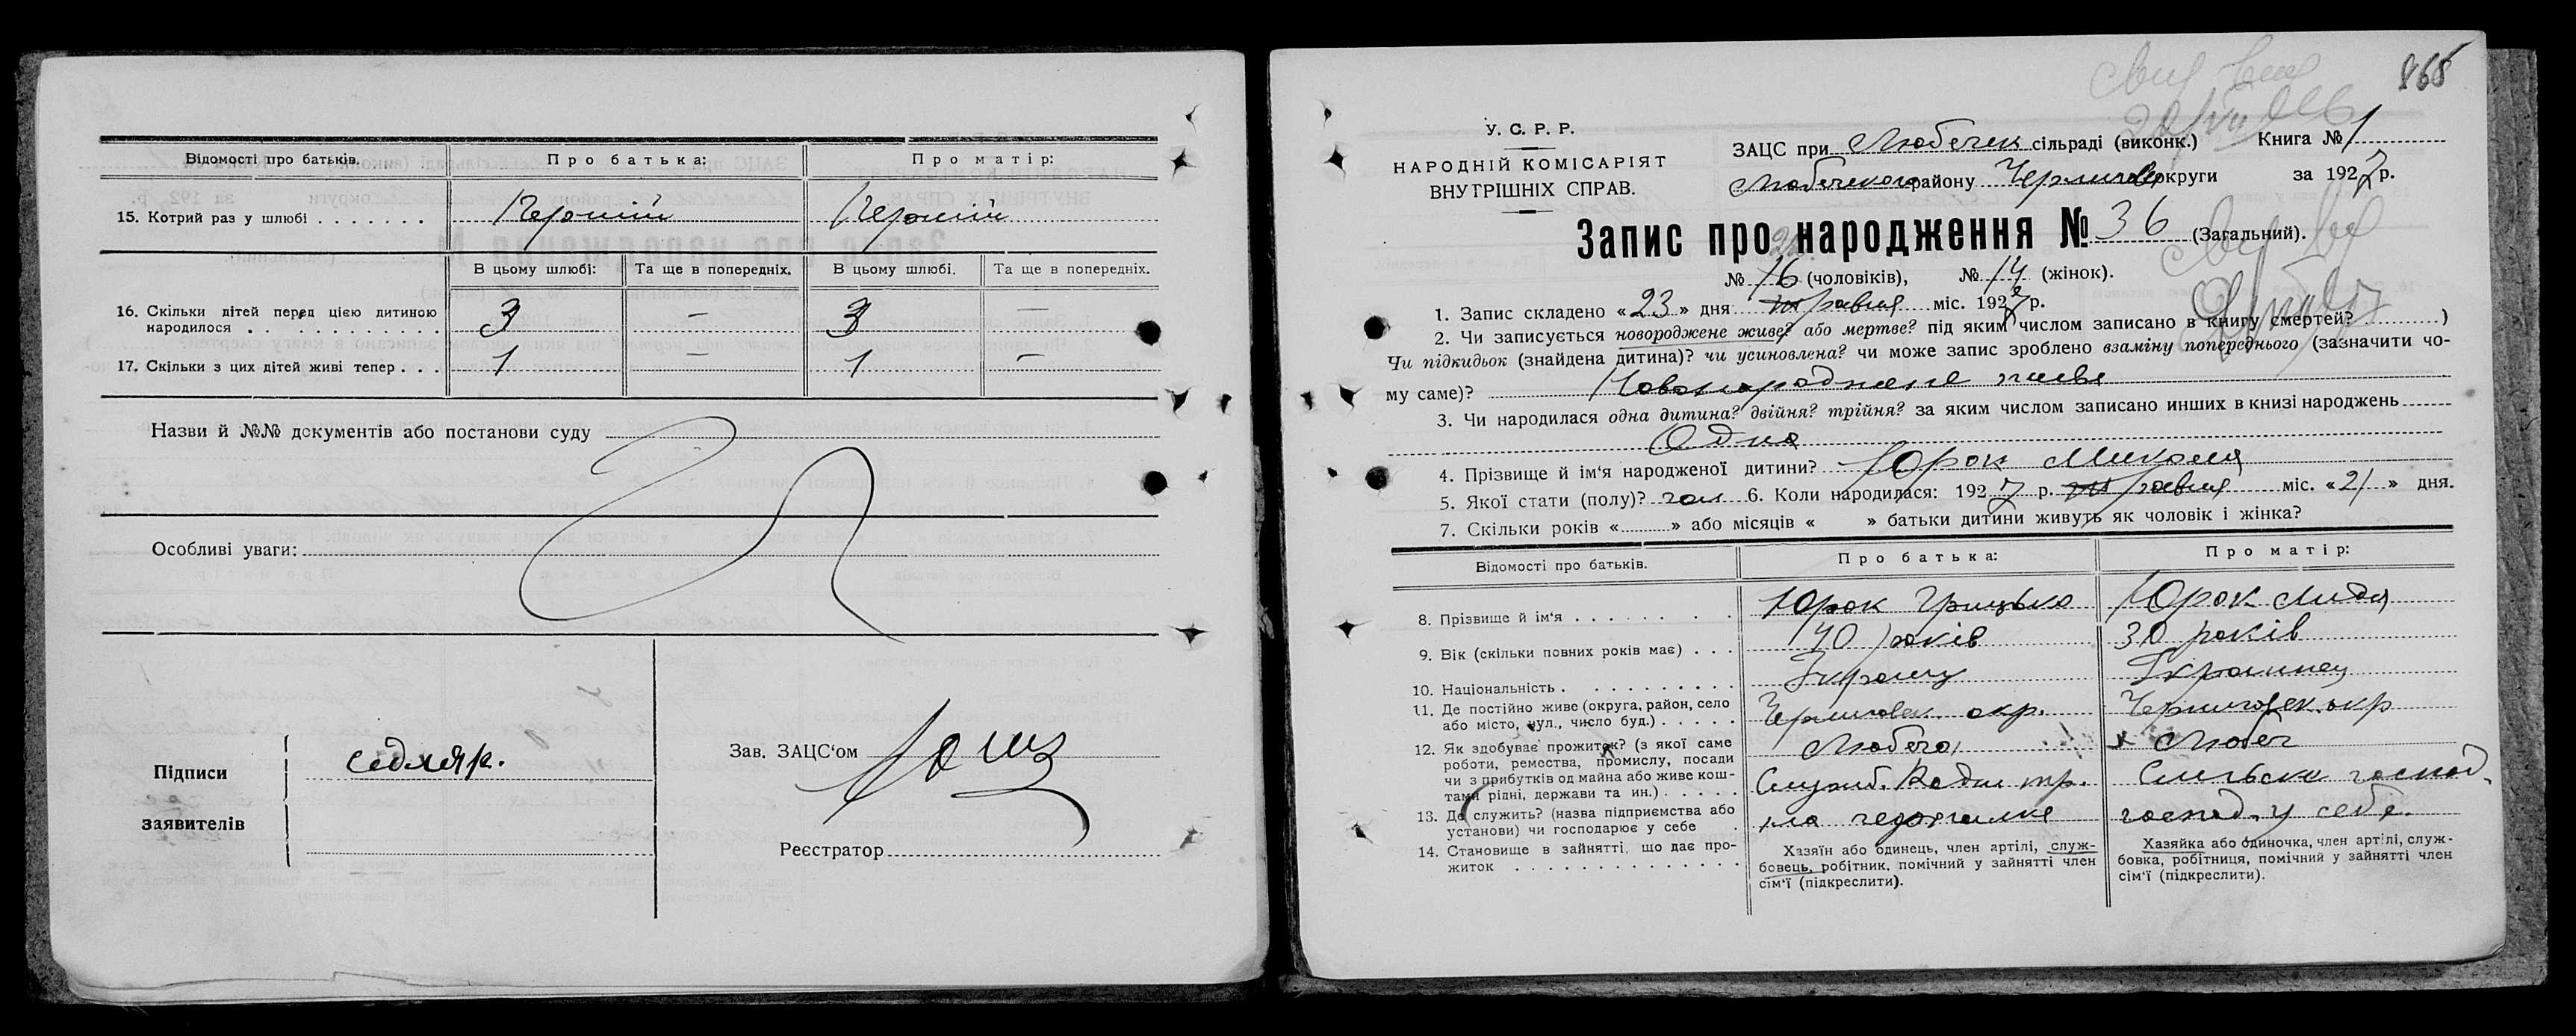 Відомості про батьків. Про батька: Про матір:
15. Котрий раз у шлюбі . . . . . . . Перший Перший
В цьому шлюбі: Та ще в попередніх. В цьому шлюбі. Та ще в попередніх.
16. Скільки дітей перед цією дитиною
народилося . . . . . . . . . . . 3 — 3 —
17. Скільки з цих дітей живі тепер . . . 1 — 1 —
Назви й №№ документів або постанови суду
Особливі уваги:
Підписи
заявителів
Зав. ЗАЦС'ом
Реєстратор
865
У. С. Р. Р.
НАРОДНІЙ КОМІСАРІЯТ
ВНУТРІШНІХ СПРАВ.
ЗАЦС при Любечек сільраді (виконк.) Книга № 1
Любечского району Чернигов округи за 1927 р.
Запис про народження № 36 (Загальний).
№ 16 (чоловіків), № 14 (жінок).
1. Запис складено «23» дня травня міс. 1927 р.
2. Чи записується новороджене живе? або мертве? під яким числом записано в книгу смертей? )
Чи підкидьок (знайдена дитина)? чи усиновлена? чи може запис зроблено взаміну попереднього (зазначити чо-
му саме)? Новонароджене живе
3. Чи народилася одна дитина? двійня? трійня? за яким числом записано инших в книзі народжень
Одна
4. Прізвище й ім'я народженої дитини? Юрок Микола
5. Якої стати (полу)? чол 6. Коли народилася: 1927 р. травня міс. «21» дня.
7. Скільки років « » або місяців « » батьки дитини живуть як чоловік і жінка?
Відомості про батьків. Про батька: Про матір:
8. Прізвище й ім'я . . . . . . . . Юрок Грицько Юрок Лидя
9. Вік (скільки повних років має) . . . 40 років 30 років
10. Національність . . . . . . . . . . Украинец
11. Де постійно живе (округа, район, село
або місто, вул., число буд.) . . . . . Черниговск. окр. Черниговск. окр
12. Як здобуває прожиток? (з якої саме
роботи, ремества, промислу, посади
чи з прибутків од майна або живе кош-
тами рідні, держави та ин.) . . . . . Любеч Любеч
Служб. Водн тр. Сильске господ.
13. Де служить? (назва підприємства або
установи) чи господарює у себе . господ. у себе.
14. Становище в зайнятті, що дає про-
житок . . . . . . . . . . . . . .
Хазяїн або одинець, член артілі, служ-
бовець, робітник, помічний у зайнятті член
сім'ї (підкреслити).
Хазяйка або одиночка, член артілі, служ-
бовка, робітниця, помічний у зайнятті член
сім'ї (підкреслити).